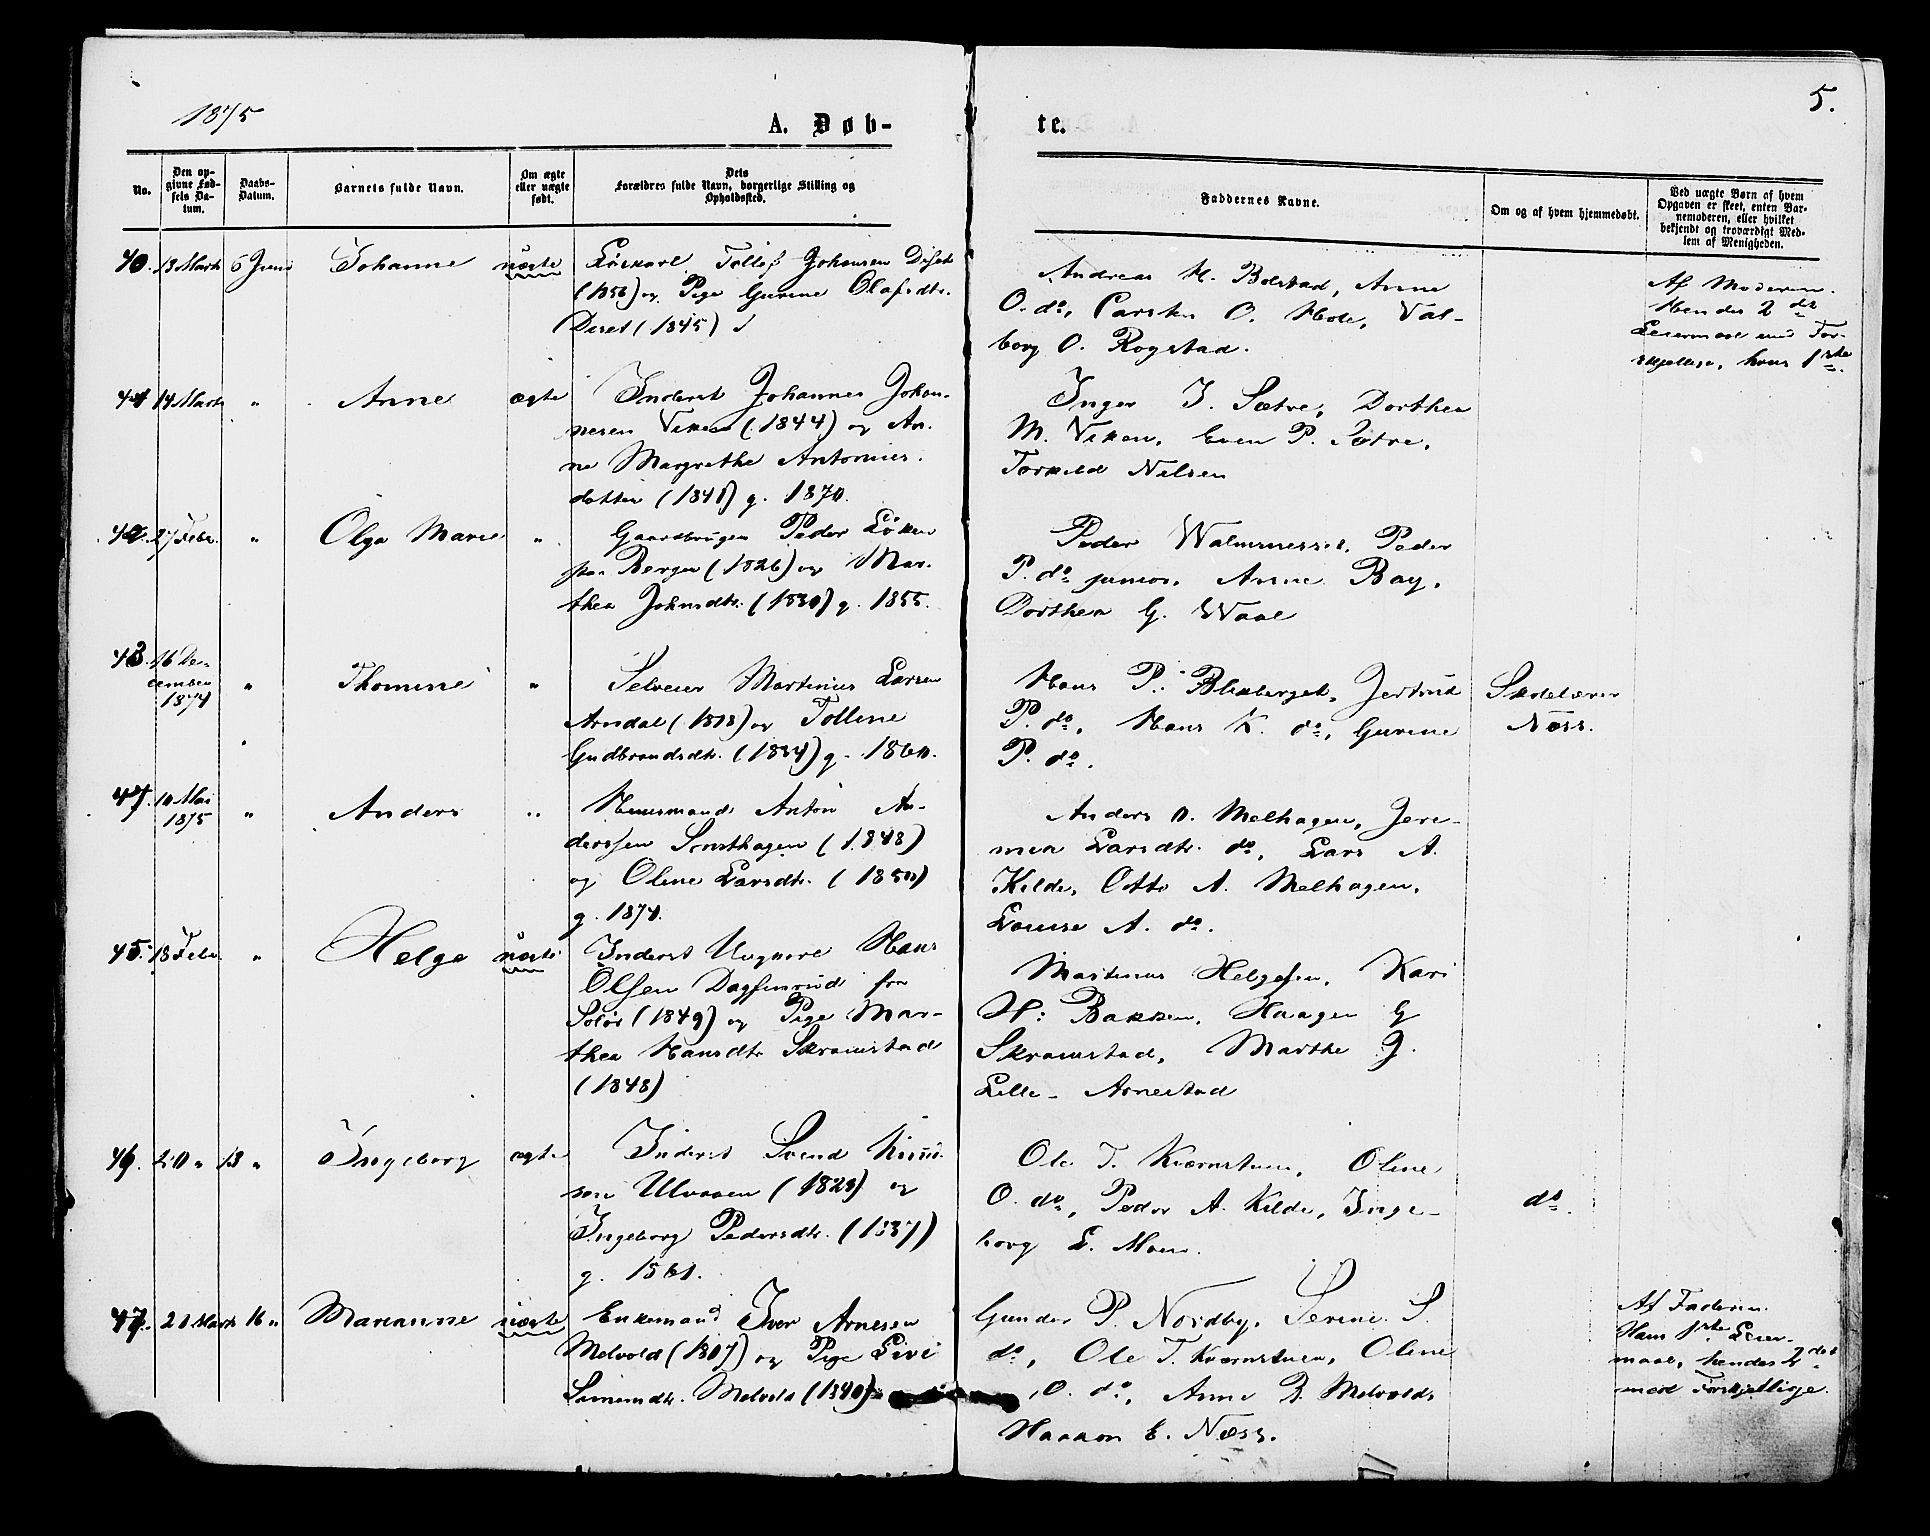 1875
A. Døb-
te.
5.
No.
Den op-
givne Fød-
sels Da-
tum.
Daabs-
Datum.
Barnets fulde Navn.
Om ægte
eller uægte
født.
Dets
Forældres fulde Navn, borgerlige Stilling og
Opholdssted.
Faddernes Navne.
Om og af hvem hjemmedøbt.
Ved uægte Børn af hvem
Opgaven er skeet, enten Bar-
nemoderen, eller hvilket
bekjendt og troværdigt Med-
lem af Menigheden.
40. 13 Marts 6 Juni Johanne uægte
Løskarl Tollef Johansen Diset
(1856) og Pige Gurine Olafsdtr.
Diset (1845)
Andreas H. Bolstad, Anne
O. do, Carsten O. Hole, Val-
borg O. Rogstad.
Af Moderen.
Hendes 2 det
Leiermaal med For-
skjellige, hans 1ste
41 14 Marts " Anne ægte
Inderst Johannes Johan-
nesen Viken (1844) og An-
ne Margrethe Antonius-
datter (1848) g. 1870.
Inger I. Sætre, Dorthea
M. Viken, Even P. Sætre,
Torkild Nilsen
42. 27 Febr. " Olga Marie "
Gaardbruger Peder
Berger (1826) og Mar-
thea Johnsdtr. (1830) g. 1855.
Peder Peder
P. do junior, Anne Bay,
Dorthea G. Waal
43. 16 De-
cember
1874 " Thomine "
Selveier Martinius Larsen
Arndal (1828) og Tolline
Gudbrandsdtr. (1834) g. 1860.
Hans P. Blekberget, Jertrud
P. do, Hans K. do, Gurine
P. do.
Skolelærer
Næss.
44. 10 Mai
1875 " Anders "
Huusmand Anton An-
derssen Sousthagen (1848)
og Oline Larsdtr. (1850)
g. 1874.
Anders O. Melhagen, Jere-
mia Larsdtr. do, Lars A.
Kilde, Otto A. Melhagen,
Louise A. do.
45. 18 Febr. " Helge uægte
Inderst Ungkarl Hans
Olsen Dagfinrud fra
Solør (1849) og Pige Mar-
thea Hansdtr. Skramstad
(1848)
Martinus Helgesen, Kari
H: Bakken, Haagen G
Skramstad, Marthe J.
Lille-Arnestad
46. 20 " 13 " Ingeborg ægte
Inderst Svend
sen Ulvaaen (1829) og
Ingeborg Pedersdtr. (1837)
g. 1861.
Ole T. Kværnstuen, Oline
O. do, Peder A. Kilde, Inge-
borg L. Moen.
do.
47. 21 Marts 16 " Marianne uægte
Enkemand Iver Arnesen
Melvold (1807) og Pige Live
Simensdtr. Melvold (1840)
Gunder P. Nordby, Serine S.
do, Ole T. Kværnstuen, Oline
O. do, Anne P. Melvold,
Haakon E. Næss.
Af Faderen.
Hans 1ste Leier-
maal, hendes 2det
med Forskjellige.